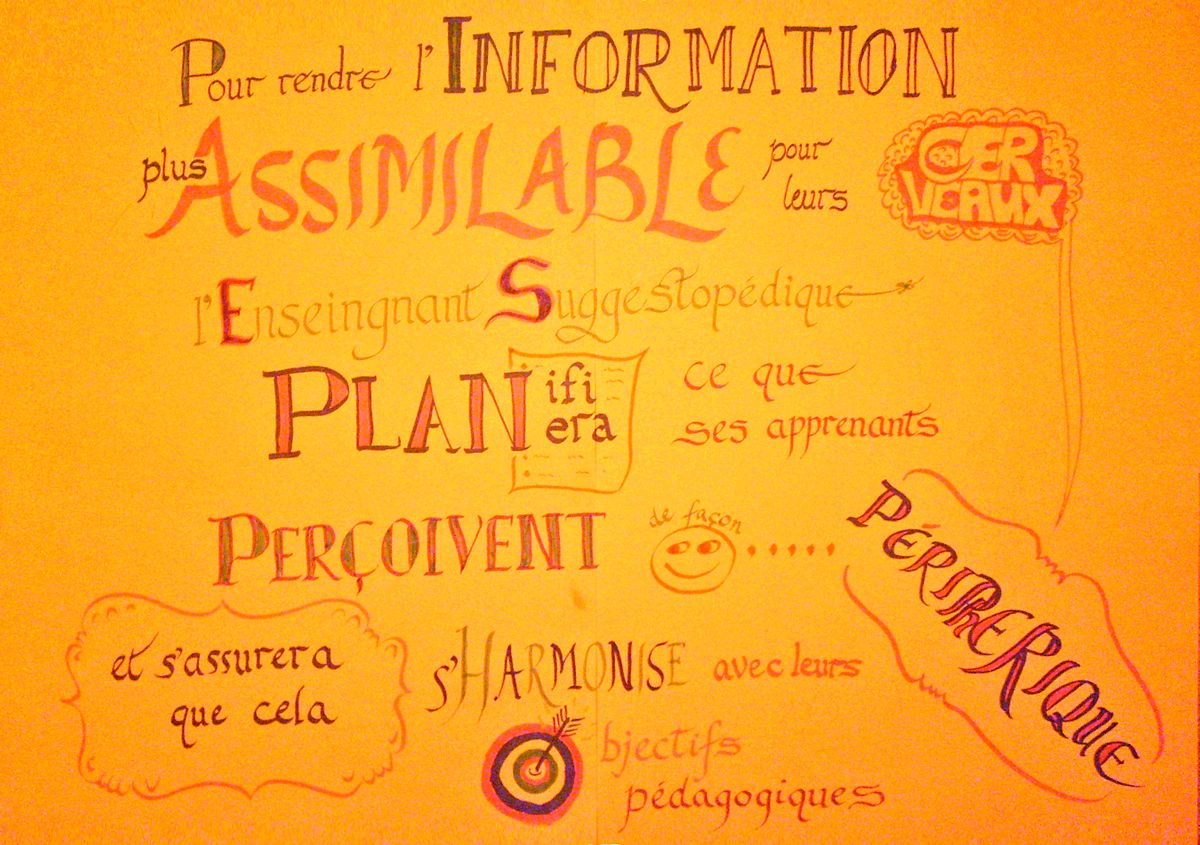 Pour rendre l'INFORMATION
plus ASSIMILABLE pour leurs CERVEAUX
l'Enseingnant Suggestopédique
PLANifiera ce que
ses apprenants
PERÇOIVENT de façon ..... PÉRIPHERIQUE
et s'assurera
que cela
s'HARMONISE avec leurs
bjectifs
pédagogiques